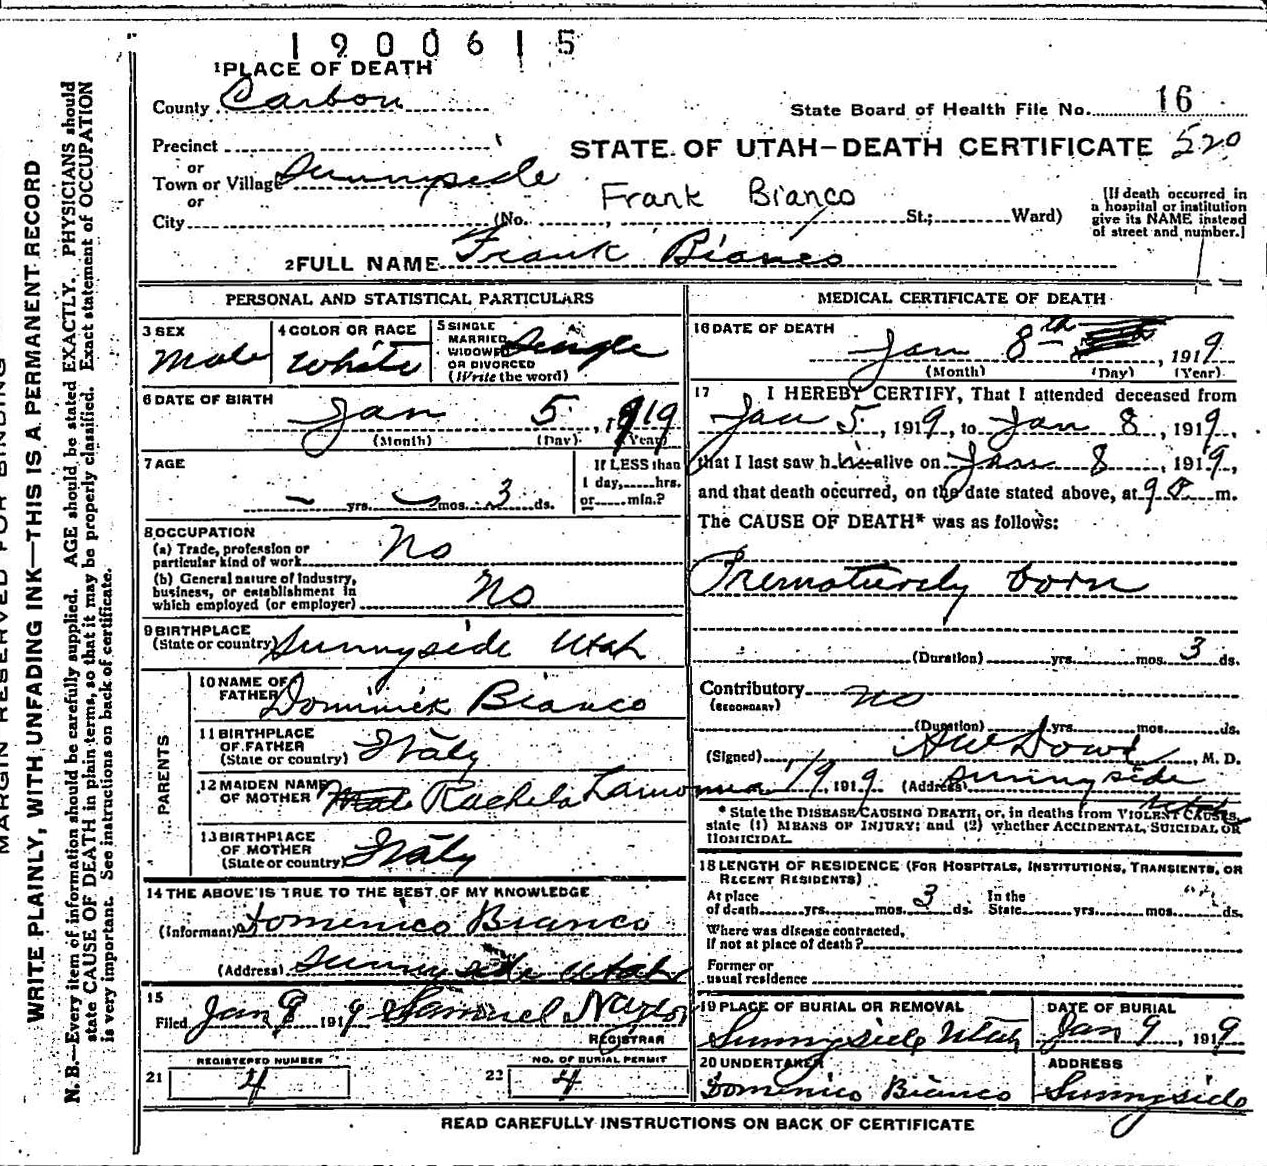 1900615
1 PLACE OF DEATH
County Carbon
State Board of Health File No. 16
Precinct
STATE OF UTAH—DEATH CERTIFICATE 520
or
Town or Village Sunnyside
or
Frank Bianco
City (No. , St.; Ward)
[If death occurred in
a hospital or institution
give its NAME instead
of street and number.]
2 FULL NAME Frank Bianco
PERSONAL AND STATISTICAL PARTICULARS
3 SEX
Male
4 COLOR OR RACE
White
5 SINGLE
MARRIED
WIDOWED
OR DIVORCED
(Write the word)
Single
6 DATE OF BIRTH
Jan 5, 1919
(Month) (Day) (Year)
7 AGE
— yrs. — mos. 3 ds.
If LESS than
1 day, hrs.
or min.?
8 OCCUPATION
(a) Trade, profession or
particular kind of work No
(b) General nature of Industry,
business, or establishment in
which employed (or employer) No
9 BIRTHPLACE
(State or country) Sunnyside Utah
PARENTS
10 NAME OF
FATHER Dominick Bianco
11 BIRTHPLACE
OF FATHER
(State or country) Italy
12 MAIDEN NAME
OF MOTHER Rachela
13 BIRTHPLACE
OF MOTHER
(State or country) Italy
14 THE ABOVE IS TRUE TO THE BEST OF MY KNOWLEDGE
(Informant) Domenico Bianco
(Address) Sunnyside Utah
15
Filed Jan 9 1919 Samuel Naylor
REGISTRAR
REGISTERED NUMBER
21 4
NO. OF BURIAL PERMIT
22 4
MEDICAL CERTIFICATE OF DEATH
16 DATE OF DEATH
Jan 8th, 1919
(Month) (Day) (Year)
17 I HEREBY CERTIFY, That I attended deceased from
Jan 5, 1919, to Jan 8, 1919,
that I last saw him alive on Jan 8, 1919,
and that death occurred, on the date stated above, at 9 m.
The CAUSE OF DEATH* was as follows:
Prematurely born
(Duration) yrs. mos. 3 ds.
Contributory no
(SECONDARY)
(Duration) yrs. mos. ds.
(Signed) AW Dowd, M. D.
1/9, 1919 (Address) Sunnyside
Utah
* State the DISEASE CAUSING DEATH, or, in deaths from VIOLENT CAUSES,
state (1) MEANS OF INJURY; and (2) whether ACCIDENTAL, SUICIDAL OR
HOMICIDAL.
18 LENGTH OF RESIDENCE (FOR HOSPITALS, INSTITUTIONS, TRANSIENTS, OR
RECENT RESIDENTS)
At place
of death yrs. mos. 3 ds.
In the
State yrs. mos. ds.
Where was disease contracted,
If not at place of death?
Former or
usual residence
19 PLACE OF BURIAL OR REMOVAL
Sunnyside Utah
DATE OF BURIAL
Jan 9, 1919
20 UNDERTAKER
Domenico Bianco
ADDRESS
Sunnyside
READ CAREFULLY INSTRUCTIONS ON BACK OF CERTIFICATE
MARGIN RESERVED FOR BINDING
WRITE PLAINLY, WITH UNFADING INK—THIS IS A PERMANENT RECORD
N. B.—Every item of information should be carefully supplied. AGE should be stated EXACTLY. PHYSICIANS should
state CAUSE OF DEATH in plain terms, so that it may be properly classified. Exact statement of OCCUPATION
is very important. See instructions on back of certificate.